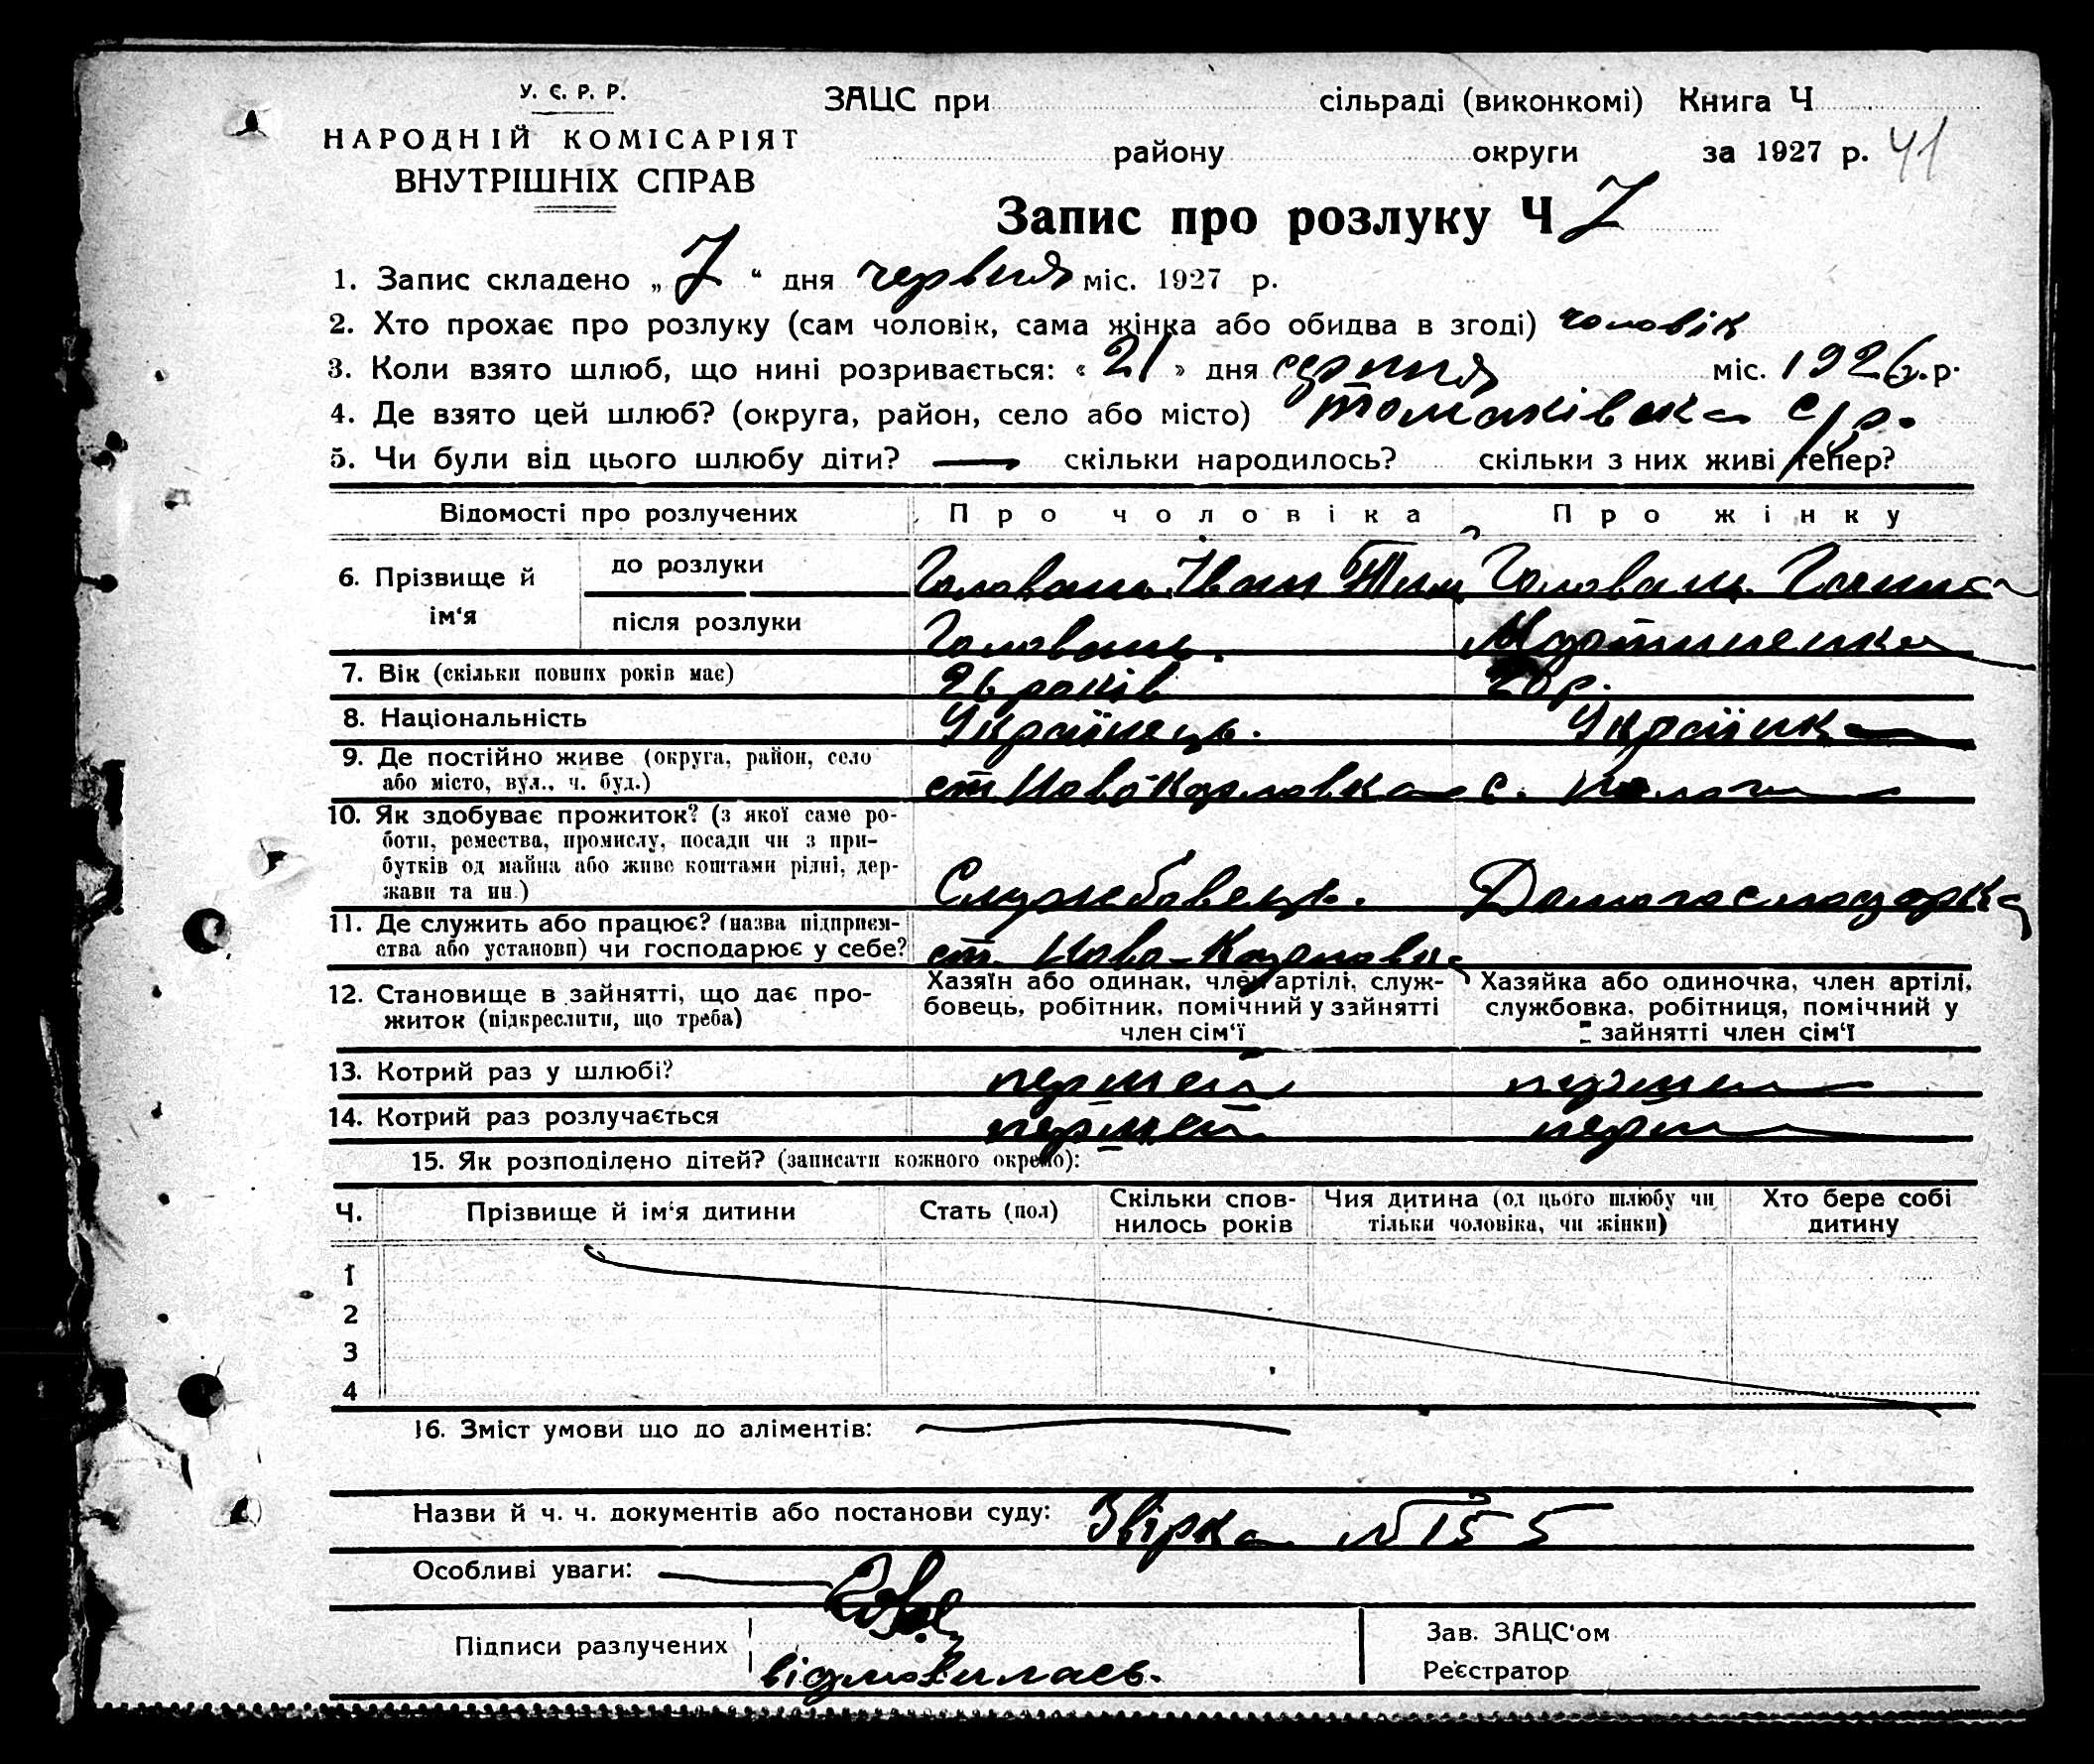 У. Є. Р. Р.
НАРОДНІЙ КОМІСАРІЯТ
ВНУТРІШНІХ СПРАВ
ЗАЦС при сільраді (виконкомі) Книга Ч
району округи за 1927 р. 41
Запис про розлуку Ч 7
1. Запис складено „ 7 “ дня червня міс. 1927 р.
2. Хто прохає про розлуку (сам чоловік, сама жінка або обидва в згоді) чоловік
3. Коли взято шлюб, що нині розривається: « 21 » дня серпня міс. 1926 р.
4. Де взято цей шлюб? (округа, район, село або місто) Томаківська с/р.
5. Чи були від цього шлюбу діти? — скільки народилось? скільки з них живі тепер?
Відомості про розлучених Про чоловіка Про жінку
6. Прізвище й ім‘я
до розлуки Головань Іван Тим Головань Ганна
після розлуки Головань. Мартиненко
7. Вік (скільки повних років має) 26 років 20 р.
8. Національність Українець. Українка
9. Де постійно живе (округа, район, село
або місто, вул., ч. буд.) ст. Ново-Карловка с.
10. Як здобуває прожиток? (з якої саме ро-
боти, ремества, промислу, посади чи з при-
бутків од майна або живе коштами рідні, дер-
жави та ин.) Службовець. Домогосподарка
11. Де служить або працює? (назва підприєм-
ства або установи) чи господарює у себе? ст. Ново-Карловка
12. Становище в зайнятті, що дає про-
житок (підкреслити, що треба)
Хазяїн або одинак, член артілі, служ-
бовець, робітник, помічний у зайнятті
член сім‘ї
Хазяйка або одиночка, член артілі,
службовка, робітниця, помічний у
зайнятті член сім‘ї
13. Котрий раз у шлюбі? першей перша
14. Котрий раз розлучається першей перша
15. Як розподілено дітей? (записати кожного окремо):
Ч. Прізвище й ім‘я дитини Стать (пол) Скільки спов-
нилось років Чия дитина (од цього шлюбу чи
тільки чоловіка, чи жінки) Хто бере собі
дитину
1
2
3
4
16. Зміст умови що до аліментів: —
Назви й ч. ч. документів або постанови суду: Звірка № 155
Особливі уваги: —
Підписи разлучених
відмовилась.
Зав. ЗАЦС‘ом
Реєстратор